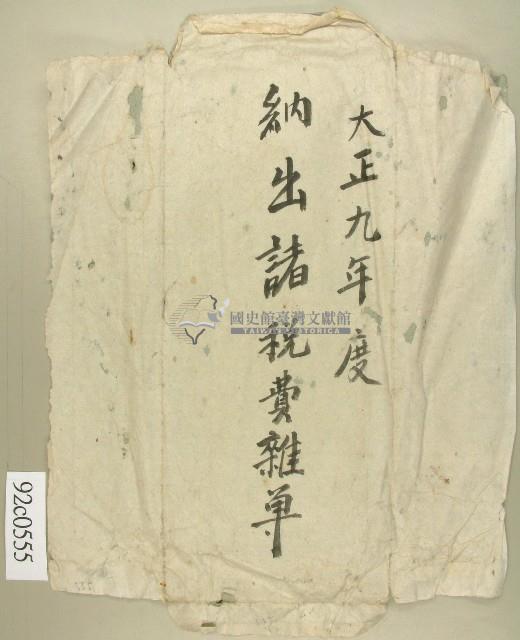 大正九年度
納出諸税費雜单
國史館臺灣文獻館
TAIWAN HISTORICA
92c0555